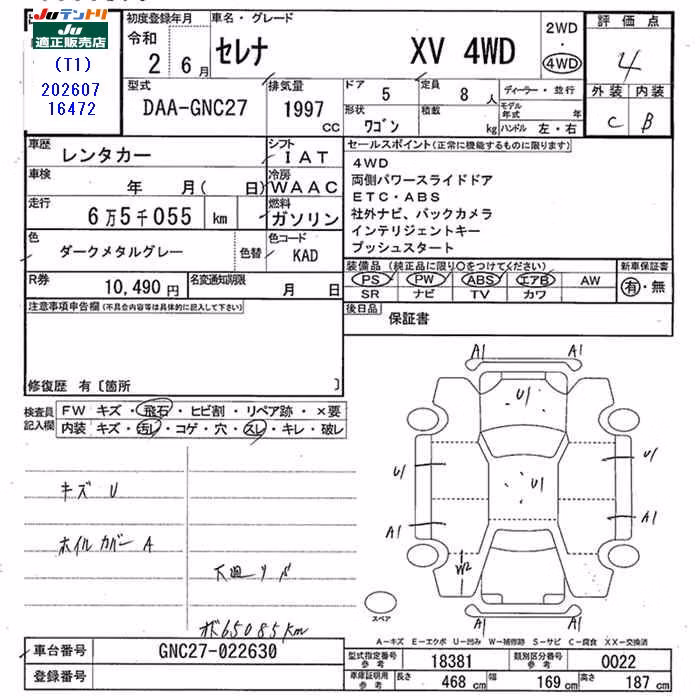 JUテントリ
JU
適正販売店
(T1)
202607
16472
初度登録年月
令和
2 6月
車名・グレード
セレナ XV 4WD
2WD
・
4WD
評価点
4
外装 内装
C B
型式
DAA-GNC27
排気量
1997
CC
ドア
5
定員
8 人
形状
ワゴン
積載
kg
ディーラー・並行
モデル年式 年
ハンドル 左・右
車歴
レンタカー
シフト
IAT
車検
年 月( 日)
冷房
WAAC
走行
6万5千055 km
燃料
ガソリン
色
ダークメタルグレー
色替
色コード
KAD
R券
10,490円
名変通知期限
月 日
セールスポイント(正常に機能するものに限ります)
4WD
両側パワースライドドア
ETC・ABS
社外ナビ、バックカメラ
インテリジェントキー
プッシュスタート
装備品(純正品に限り○をつけてください)
PS PW ABS エアB AW
SR ナビ TV カワ
新車保証書
有・無
後日品
保証書
注意事項申告欄(不具合内容等は具体的に記入して下さい)
修復歴 有〔箇所 〕
検査員
記入欄
FW キズ・飛石・ヒビ割・リペア跡・×要
内装 キズ・汚レ・コゲ・穴・スレ・キレ・破レ
キズ U
ホイルカバー A
下廻リサビ
65085km
A1 A1
U1
U1 U1
U1
A1 A1
W2
A1 A1
スペア
A-キズ E-エクボ U-凹み W-補修跡 S-サビ C-腐食 XX-交換済
車台番号
GNC27-022630
登録番号
型式指定番号
参考
18381
類別区分番号
参考
0022
車庫証明用
参考
長さ 468 cm 幅 169 cm 高さ 187 cm